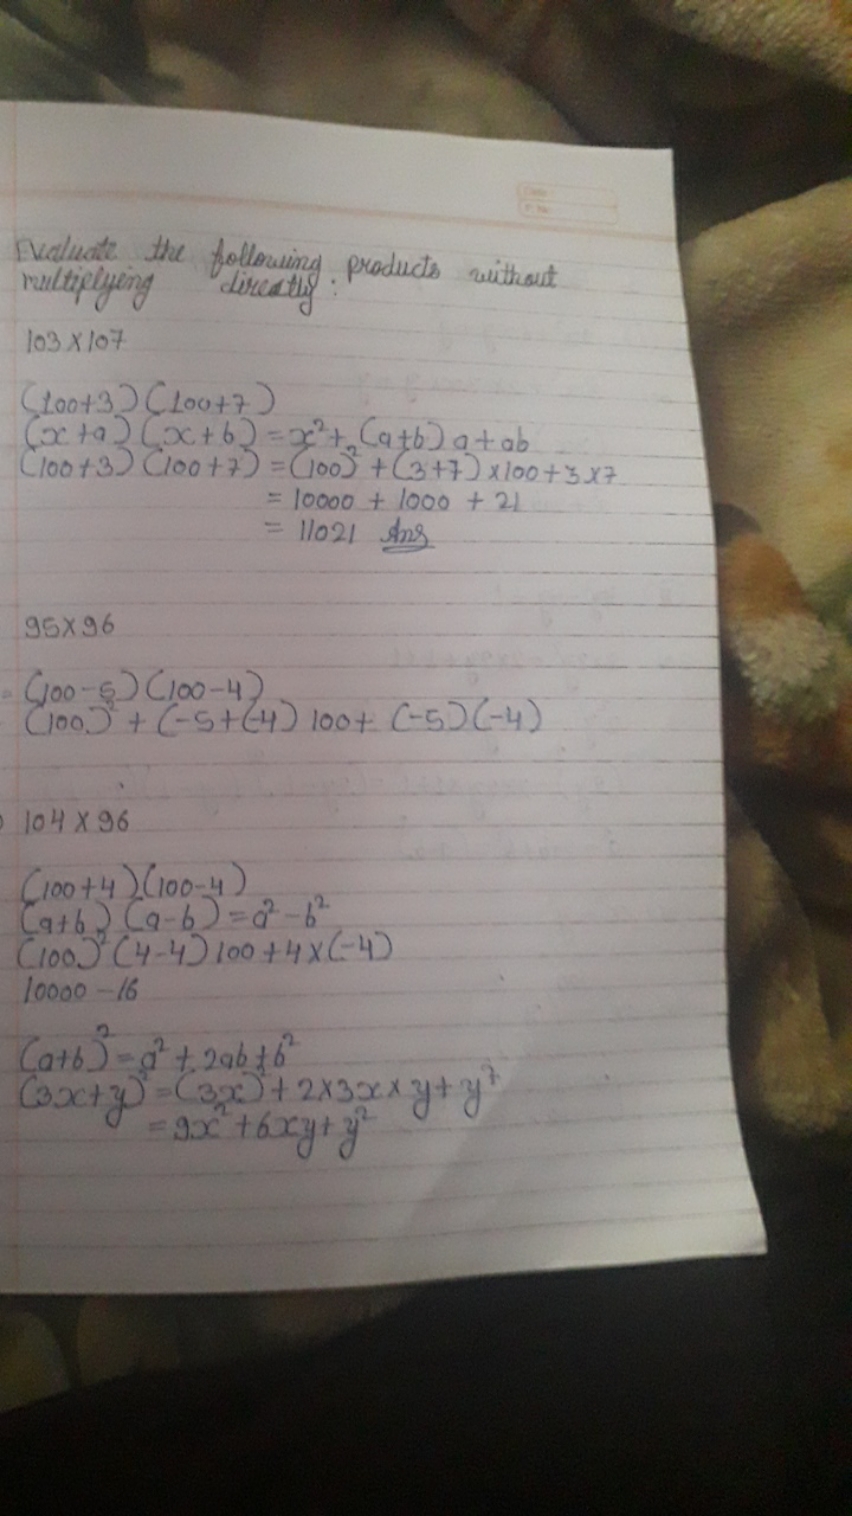 Date
P. No.
Evaluate the following products without
multiplying directly:
103 x 107
(100+3) (100+7)
(x+a) (x+b) = x² + (a+b) a + ab
(100+3) (100+7) = (100)² + (3+7) x 100 + 3 x 7
= 10000 + 1000 + 21
= 11021 Ans
95 x 96
= (100-5) (100-4)
(100)² + (-5+(-4) 100 + (-5) (-4)
104 x 96
(100+4) (100-4)
(a+b) (a-b) = a² - b²
(100)² (4-4) 100 + 4 x (-4)
10000 - 16
(a+b)² = a² + 2ab + b²
(3x+y)² = (3x)² + 2 x 3x x y + y²
= 9x² + 6xy + y²